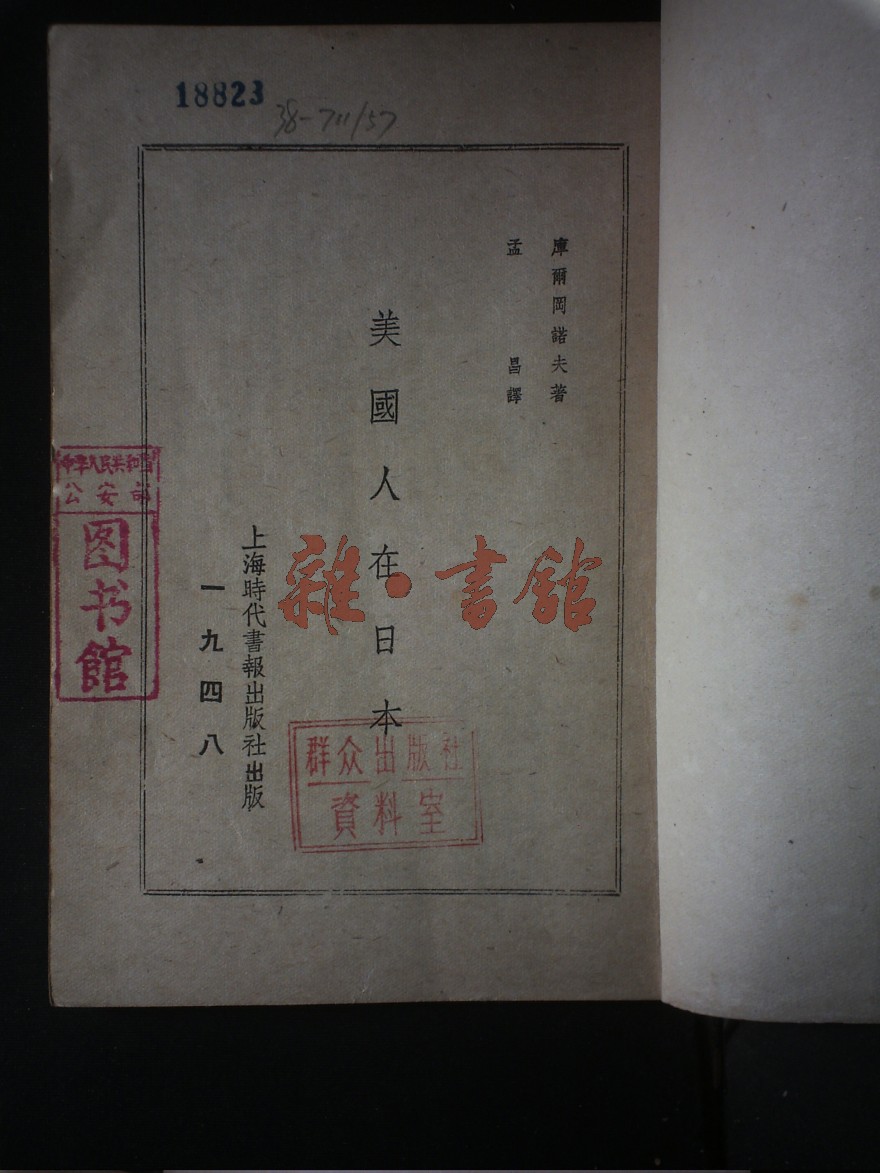 18823
38-711/57
庫爾岡諾夫著
孟昌譯
美國人在日本
上海時代書報出版社出版
一九四八
中华人民共和国
公安部
图书馆
雜·書館
群众出版社
資料室